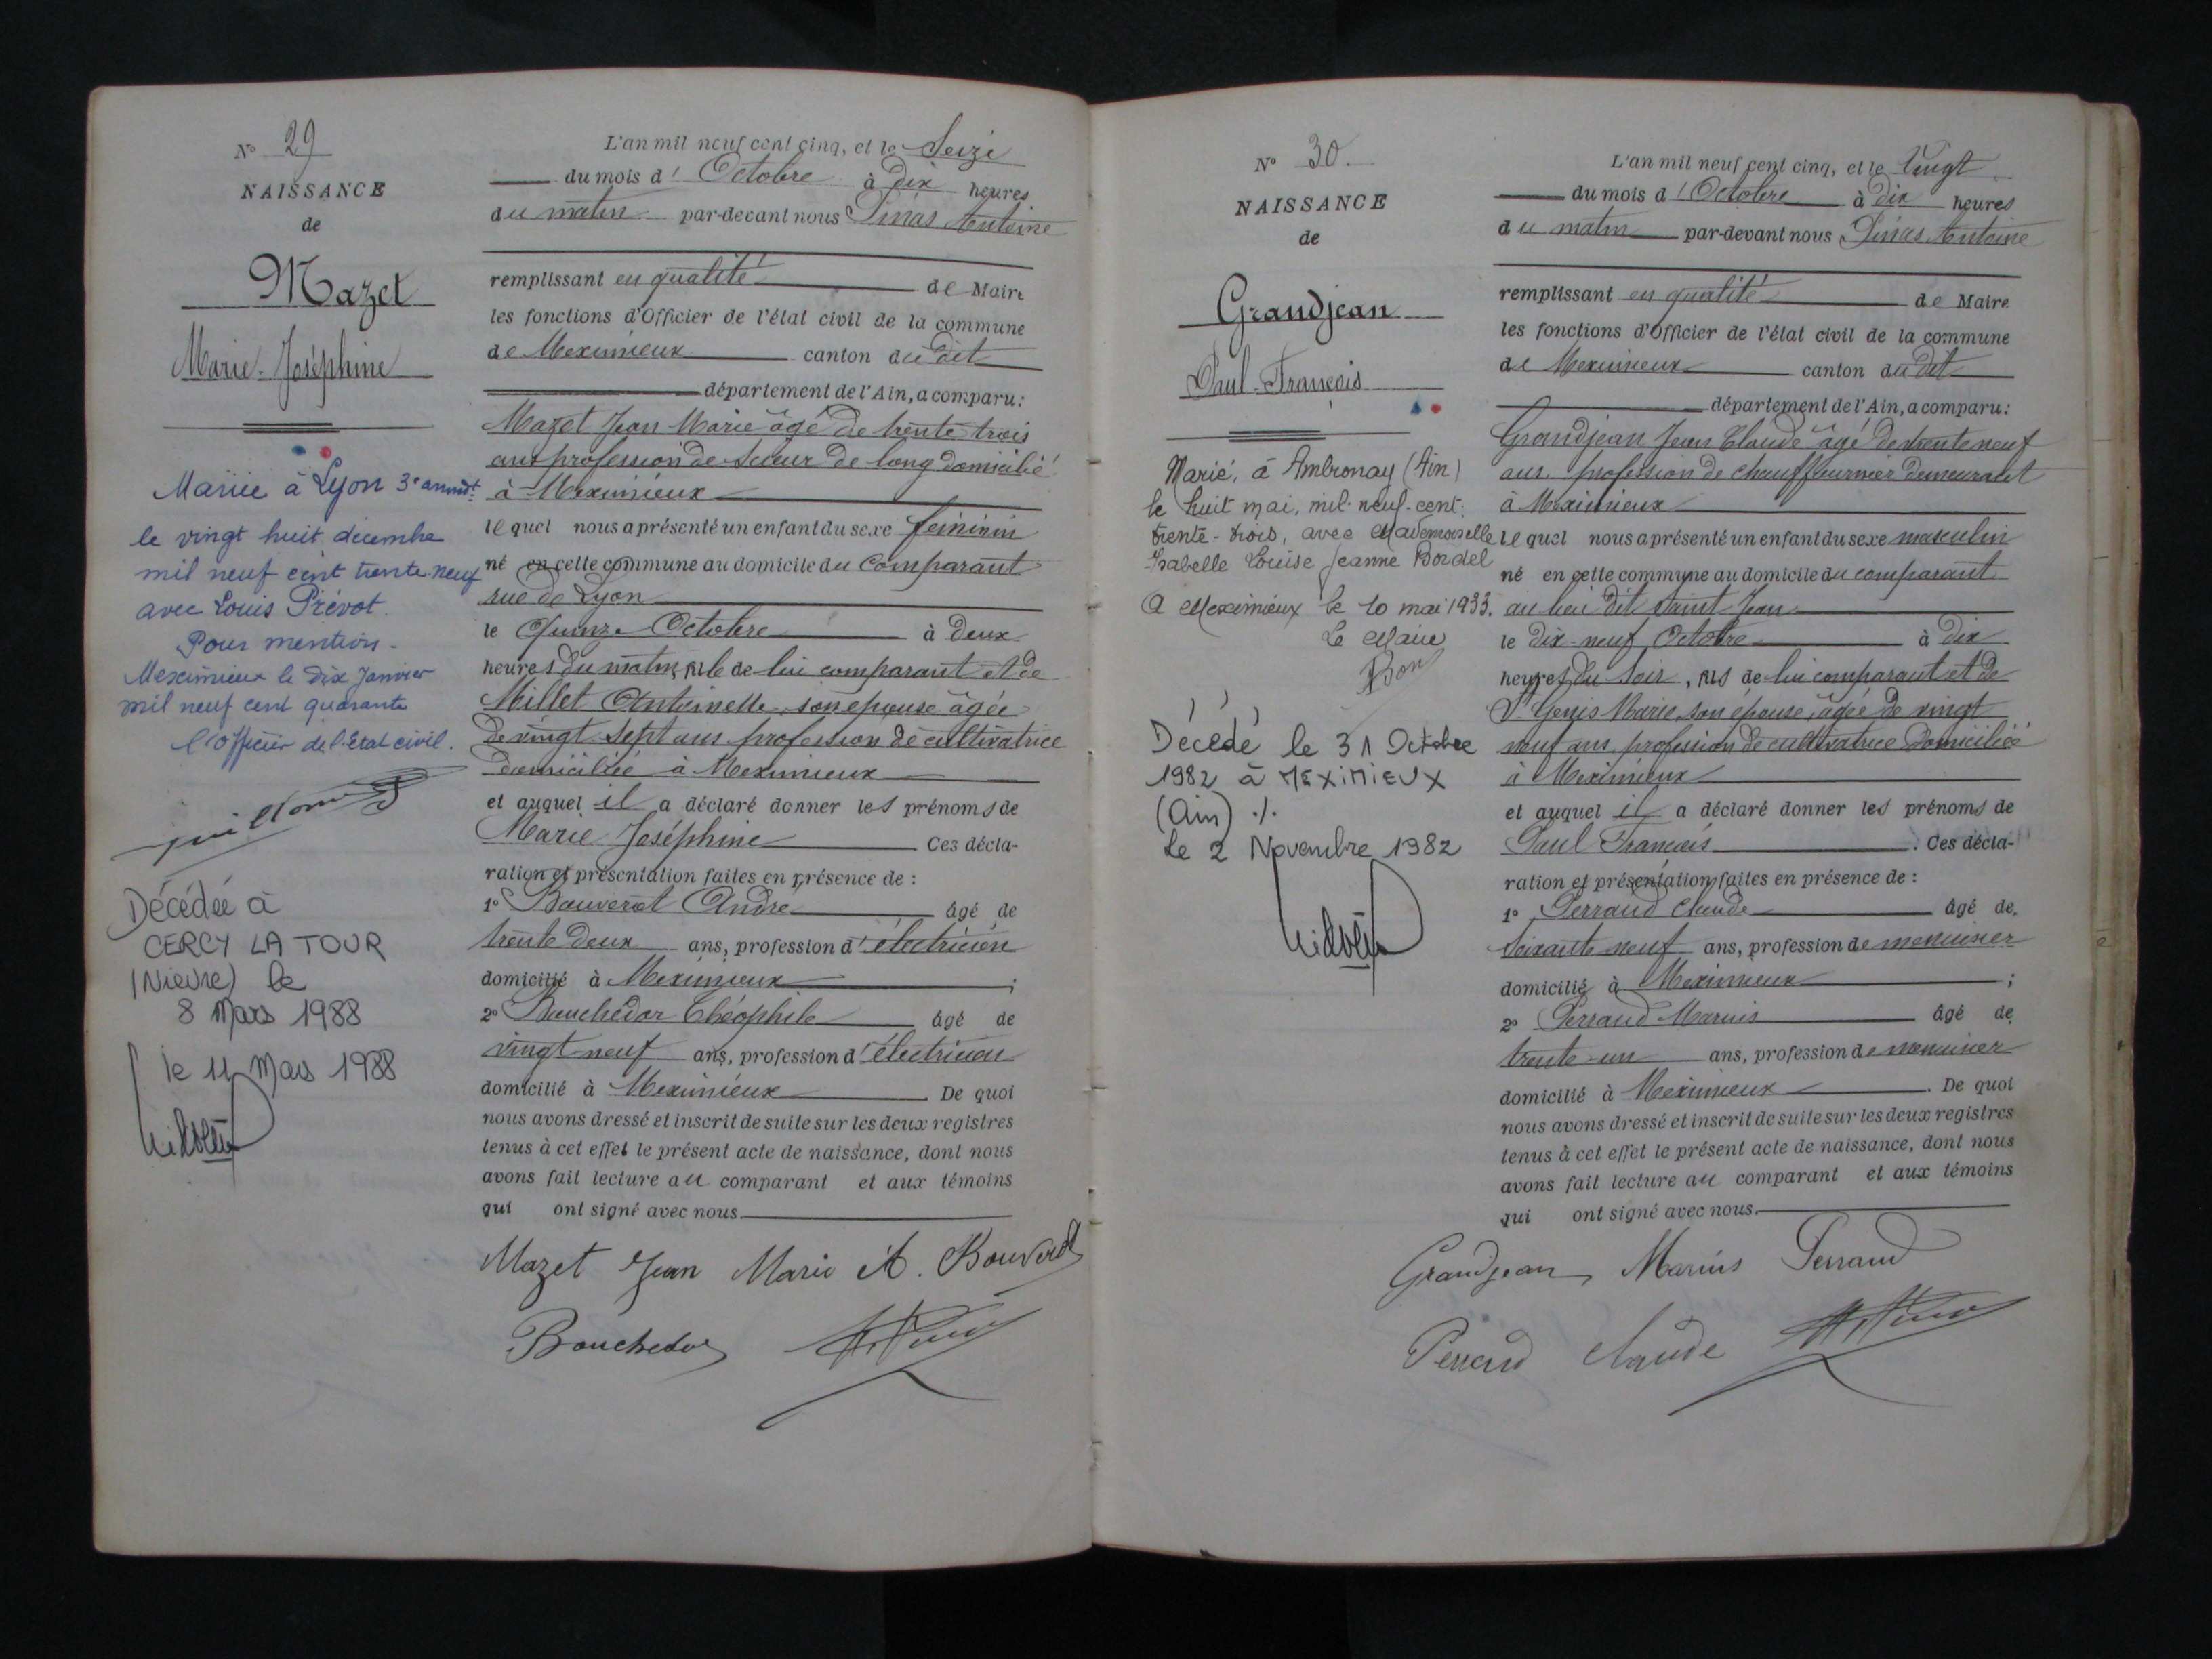 N° 29
NAISSANCE
de
Mazet
Marie-Joséphine
Mariée à Lyon 3e arrondt
le vingt huit décembre
mil neuf cent trente-neuf
avec Louis Prévot.
Pour mention-
Meximieux le dix Janvier
mil neuf cent quarante
l'officier de l'Etat civil.
Décédée à
CERCY LA TOUR
(Nièvre) le
8 Mars 1988
le 11 Mars 1988
L'an mil neuf cent cinq, et le Seize
du mois d'Octobre à dix heures
du matin par-devant nous Pinas Antoine
remplissant en qualité de Maire
les fonctions d'Officier de l'état civil de la commune
de Meximieux canton du dit
département de l'Ain, a comparu:
Mazet Jean Marie âgé de trente trois
ans profession de Scieur de long domicilié
à Meximieux
lequel nous a présenté un enfant du sexe féminin
né en cette commune au domicile du Comparant
rue de Lyon
le Quinze Octobre à deux
heures du matin, fille de lui comparant et de
Millet Antoinette, son épouse âgée
de vingt sept ans profession de cultivatrice
domiciliée à Meximieux
et auquel il a déclaré donner les prénoms de
Marie Joséphine Ces décla-
ration et présentation faites en présence de :
1° Bouverat André âgé de
trente deux ans, profession d'électricien
domicilié à Meximieux ;
2° Bouchedor Théophile âgé de
vingt neuf ans, profession d'électricien
domicilié à Meximieux De quoi
nous avons dressé et inscrit de suite sur les deux registres
tenus à cet effet le présent acte de naissance, dont nous
avons fait lecture au comparant et aux témoins
qui ont signé avec nous.
Mazet Jean Marie A. Bouverat
Bouchedor
N° 30.
NAISSANCE
de
Grandjean
Paul-François
Marié, à Ambronay (Ain)
le huit mai, mil-neuf-cent-
trente-trois, avec Mademoiselle
Isabelle Louise Jeanne Bordel
A Meximieux le 10 mai 1933.
Le Maire
Bon
Décédé le 31 Octobre
1982 à MEXIMIEUX
(Ain) ./.
Le 2 Novembre 1982
L'an mil neuf cent cinq, et le Vingt
du mois d'Octobre à dix heures
du matin par-devant nous Pinas Antoine
remplissant en qualité de Maire
les fonctions d'Officier de l'état civil de la commune
de Meximieux canton du dit
département de l'Ain, a comparu:
Grandjean Jean Claude âgé de trente neuf
ans profession de chauffournier demeurant
à Meximieux
lequel nous a présenté un enfant du sexe masculin
né en cette commune au domicile du comparant
au lieu dit Saint Jean
le dix-neuf Octobre à dix
heures du Soir, fils de lui comparant et de
St Genis Marie, son épouse, âgée de vingt
neuf ans profession de cultivatrice domiciliée
à Meximieux
et auquel il a déclaré donner les prénoms de
Paul François . Ces décla-
ration et présentation faites en présence de :
1° Perraud Claude âgé de
Soixante neuf ans, profession de menuisier
domicilié à Meximieux ;
2° Perraud Marius âgé de
trente-un ans, profession de menuisier
domicilié à Meximieux . De quoi
nous avons dressé et inscrit de suite sur les deux registres
tenus à cet effet le présent acte de naissance, dont nous
avons fait lecture au comparant et aux témoins
qui ont signé avec nous.
Grandjean Marius Perraud
Perraud Claude